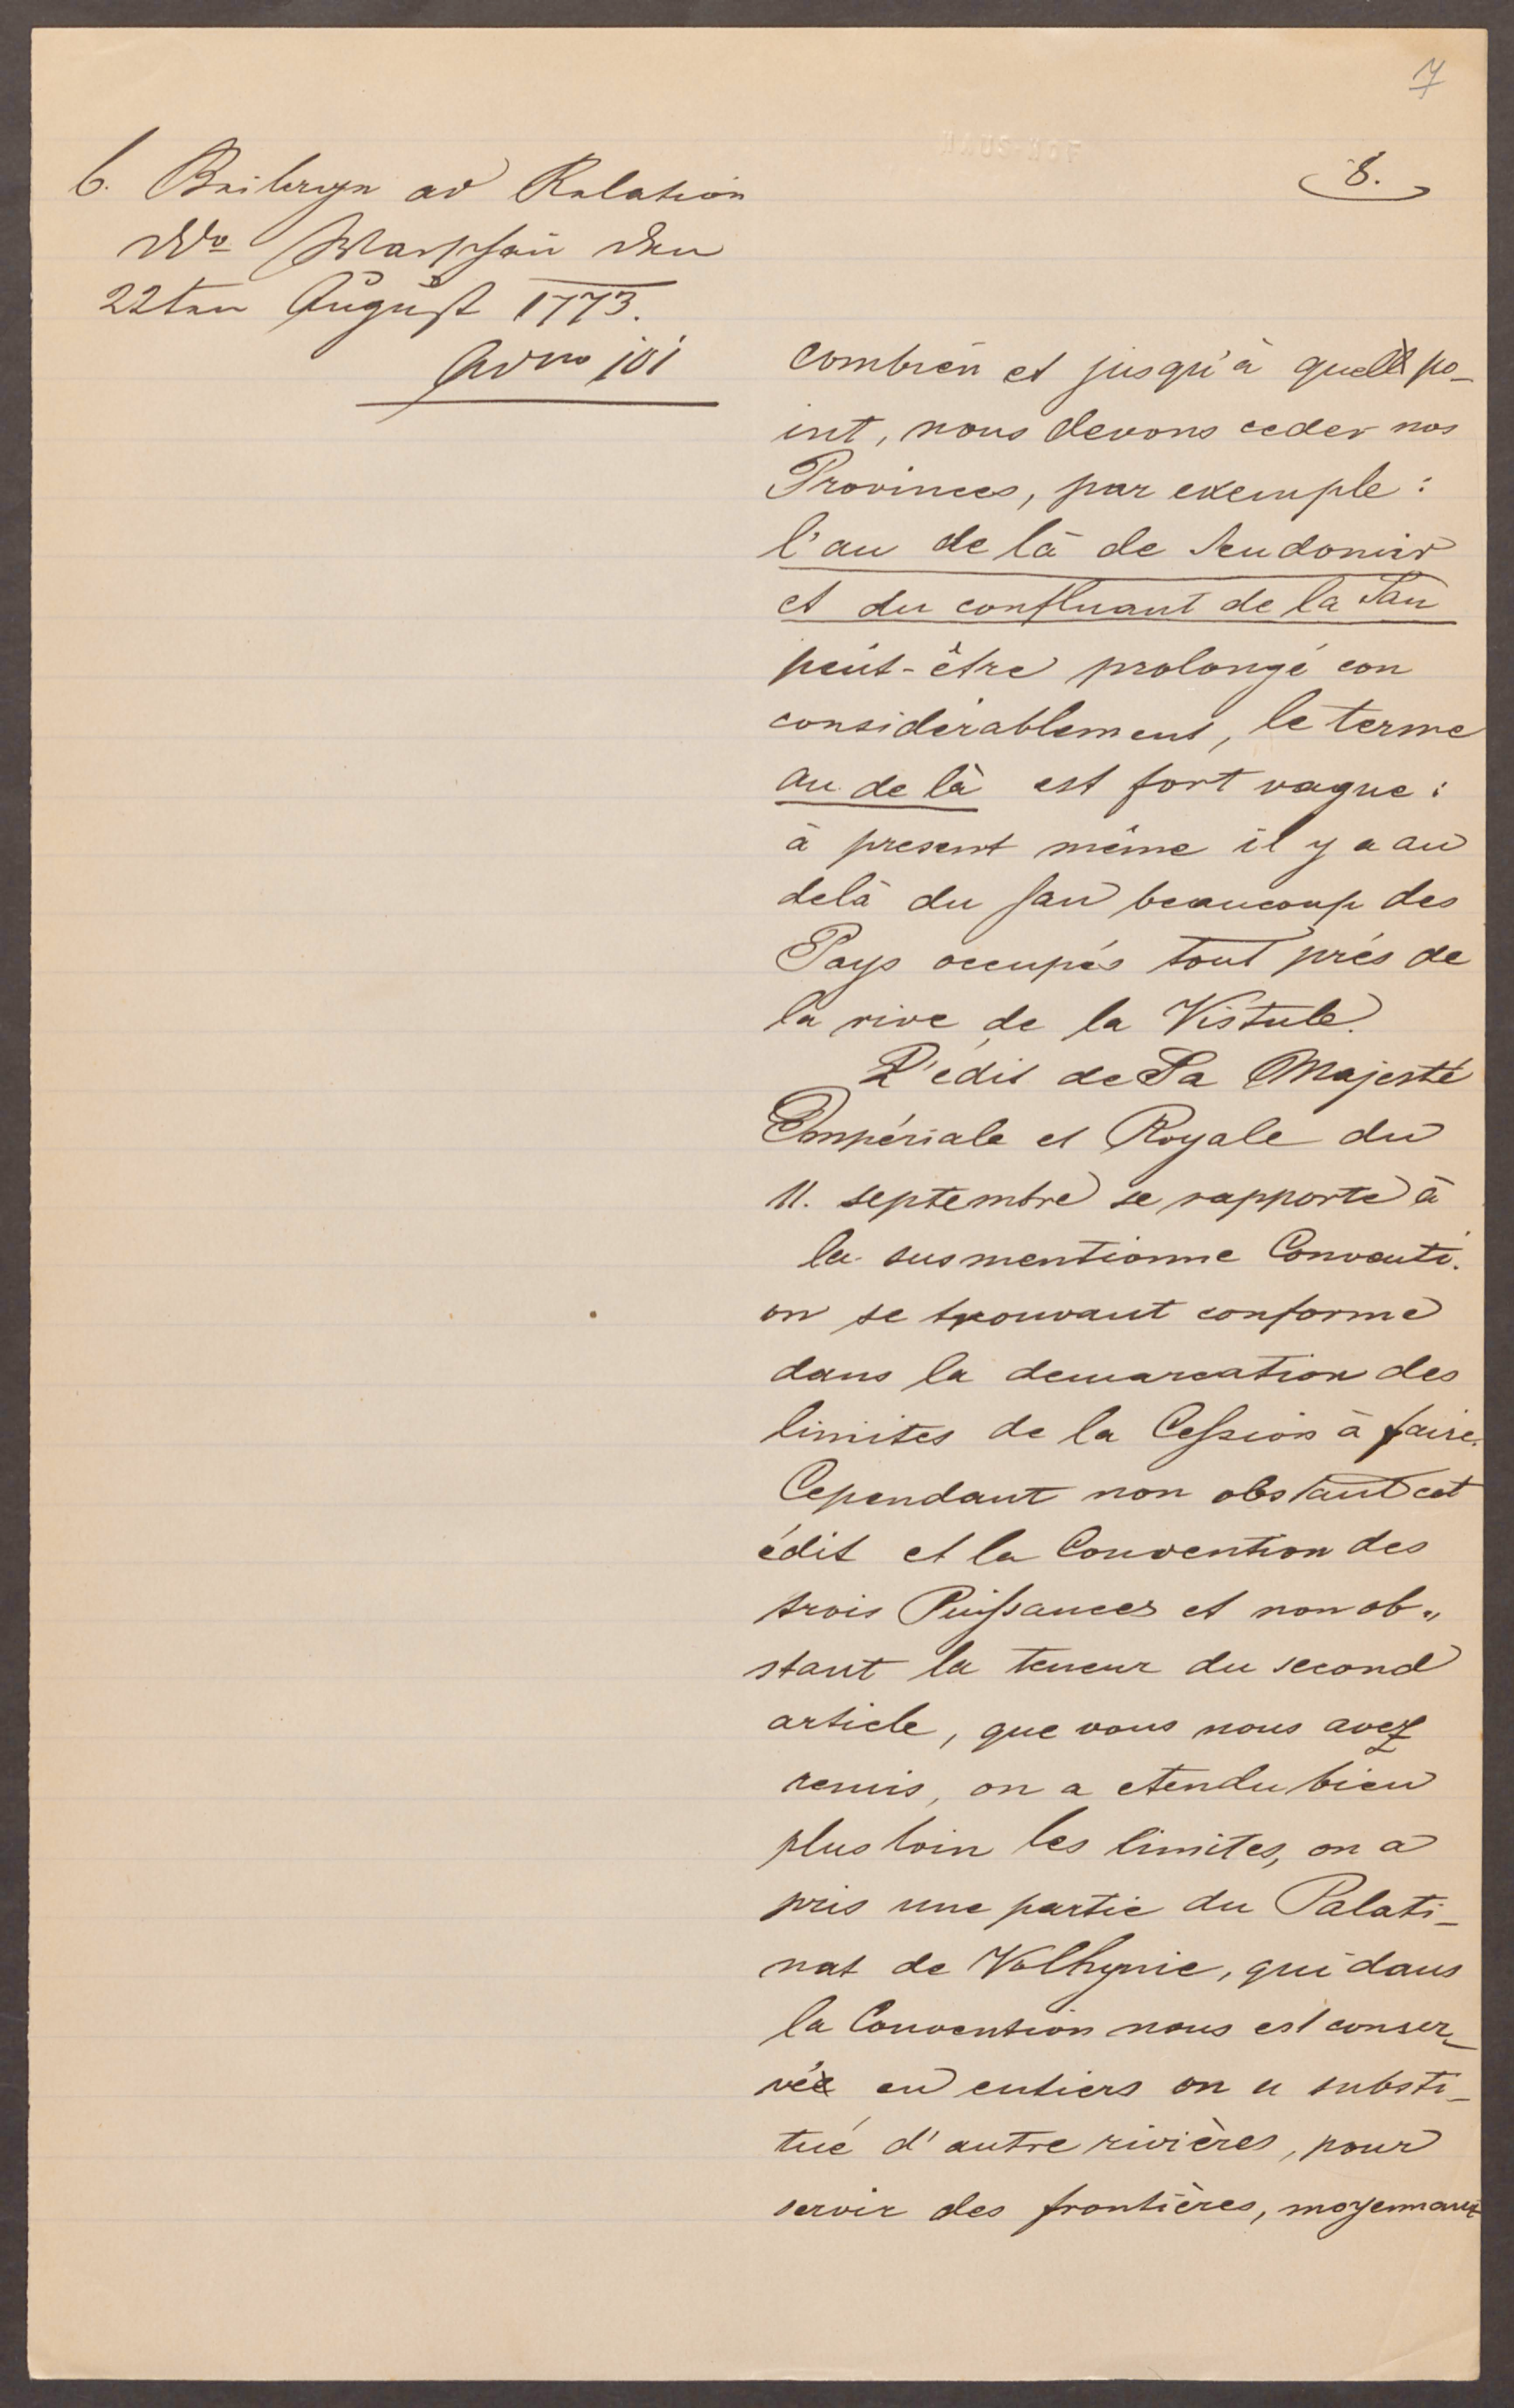 7
8.
6. Beilage ad Relation
Warschau den
22ten August 1773.
combien et jusqu'à quel po-
int, nous devons ceder nos
Provinces, par exemple:
l'au de là de Sendomir
et du confluant de la San
peut-être prolongé con
considérablement, le terme
au de là est fort vague:
à present même il y a au
delà du San beaucoup des
Pays occupés tout près de
la rive de la Vistule.
L'édit de Sa Majesté
Impériale et Royale du
11. septembre se rapporte à
la susmentionne Conventi-
on se trouvant conforme
dans la demarcation des
limites de la Cession à faire.
Cependant non obstant cet
édit et la Convention des
trois Puissances et non ob„
stant la teneur du second
article, que vous nous avez
remis, on a etendu bien
plus loin les limites, on a
pris une partie du Palati-
nat de Volhynie, qui dans
la Convention nous est conser-
vée en entiers on a substi-
tué d'autre rivières, pour
servir des frontières, moyennant